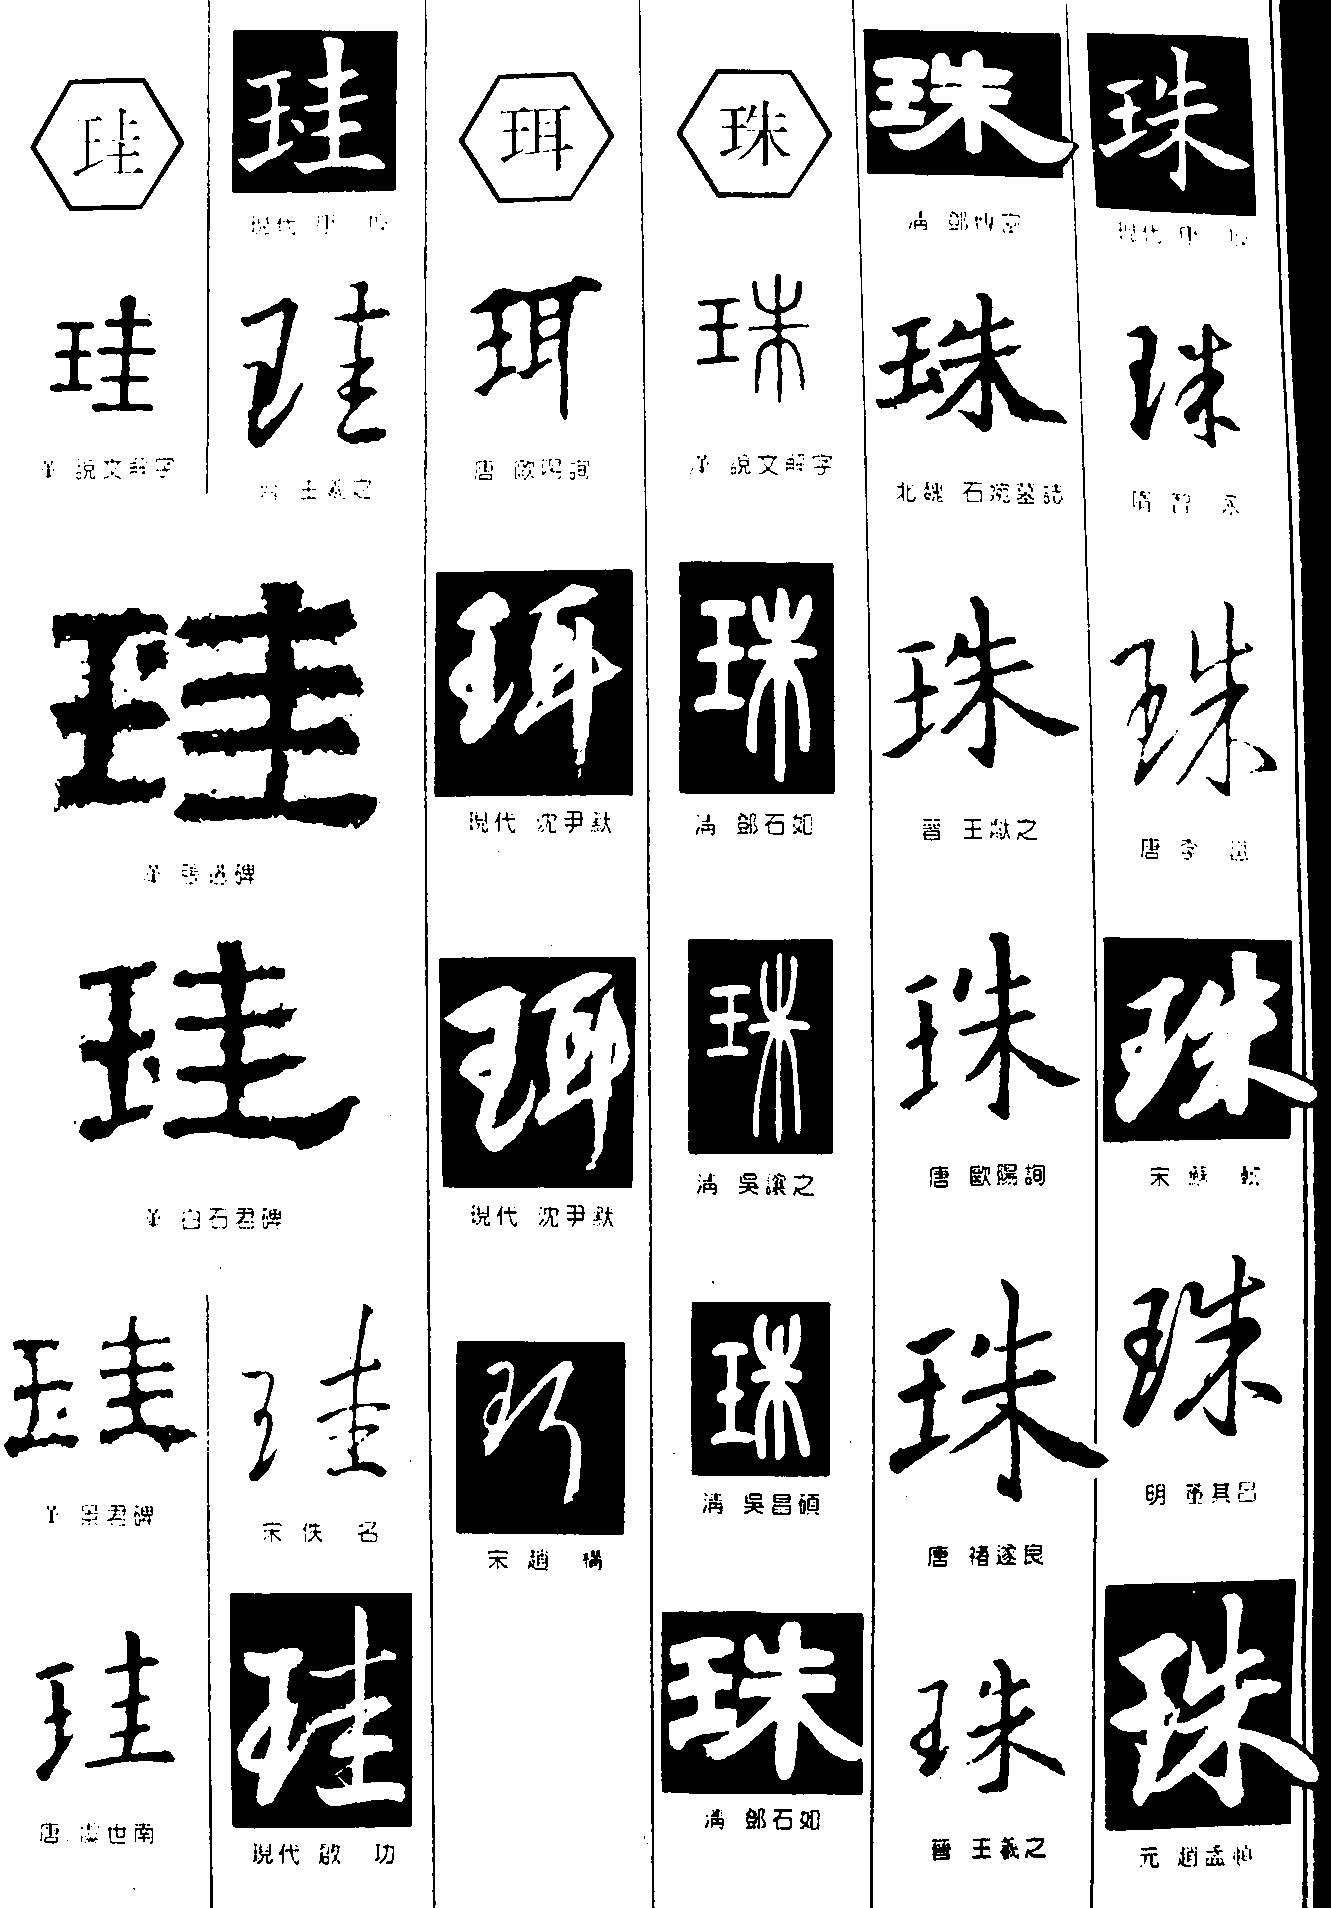 珪
珪
漢 說文解字
珪
漢 張遷碑
珪
漢 白石君碑
珪
漢 景君碑
珪
唐 虞世南
珪
現代 康 殷
珪
晉 王羲之
珪
宋 佚 名
珪
現代 啟 功
珥
珥
唐 歐陽詢
珥
現代 沈尹默
珥
現代 沈尹默
珥
宋 趙 構
珠
珠
漢 說文解字
珠
清 鄧石如
珠
清 吳讓之
珠
清 吳昌碩
珠
清 鄧石如
珠
清 鄧傳密
珠
北魏 石婉墓誌
珠
晉 王獻之
珠
唐 歐陽詢
珠
唐 褚遂良
珠
晉 王羲之
珠
現代 康 殷
珠
隋 智 永
珠
唐 李 邕
珠
宋 蘇 軾
珠
明 董其昌
珠
元 趙孟頫